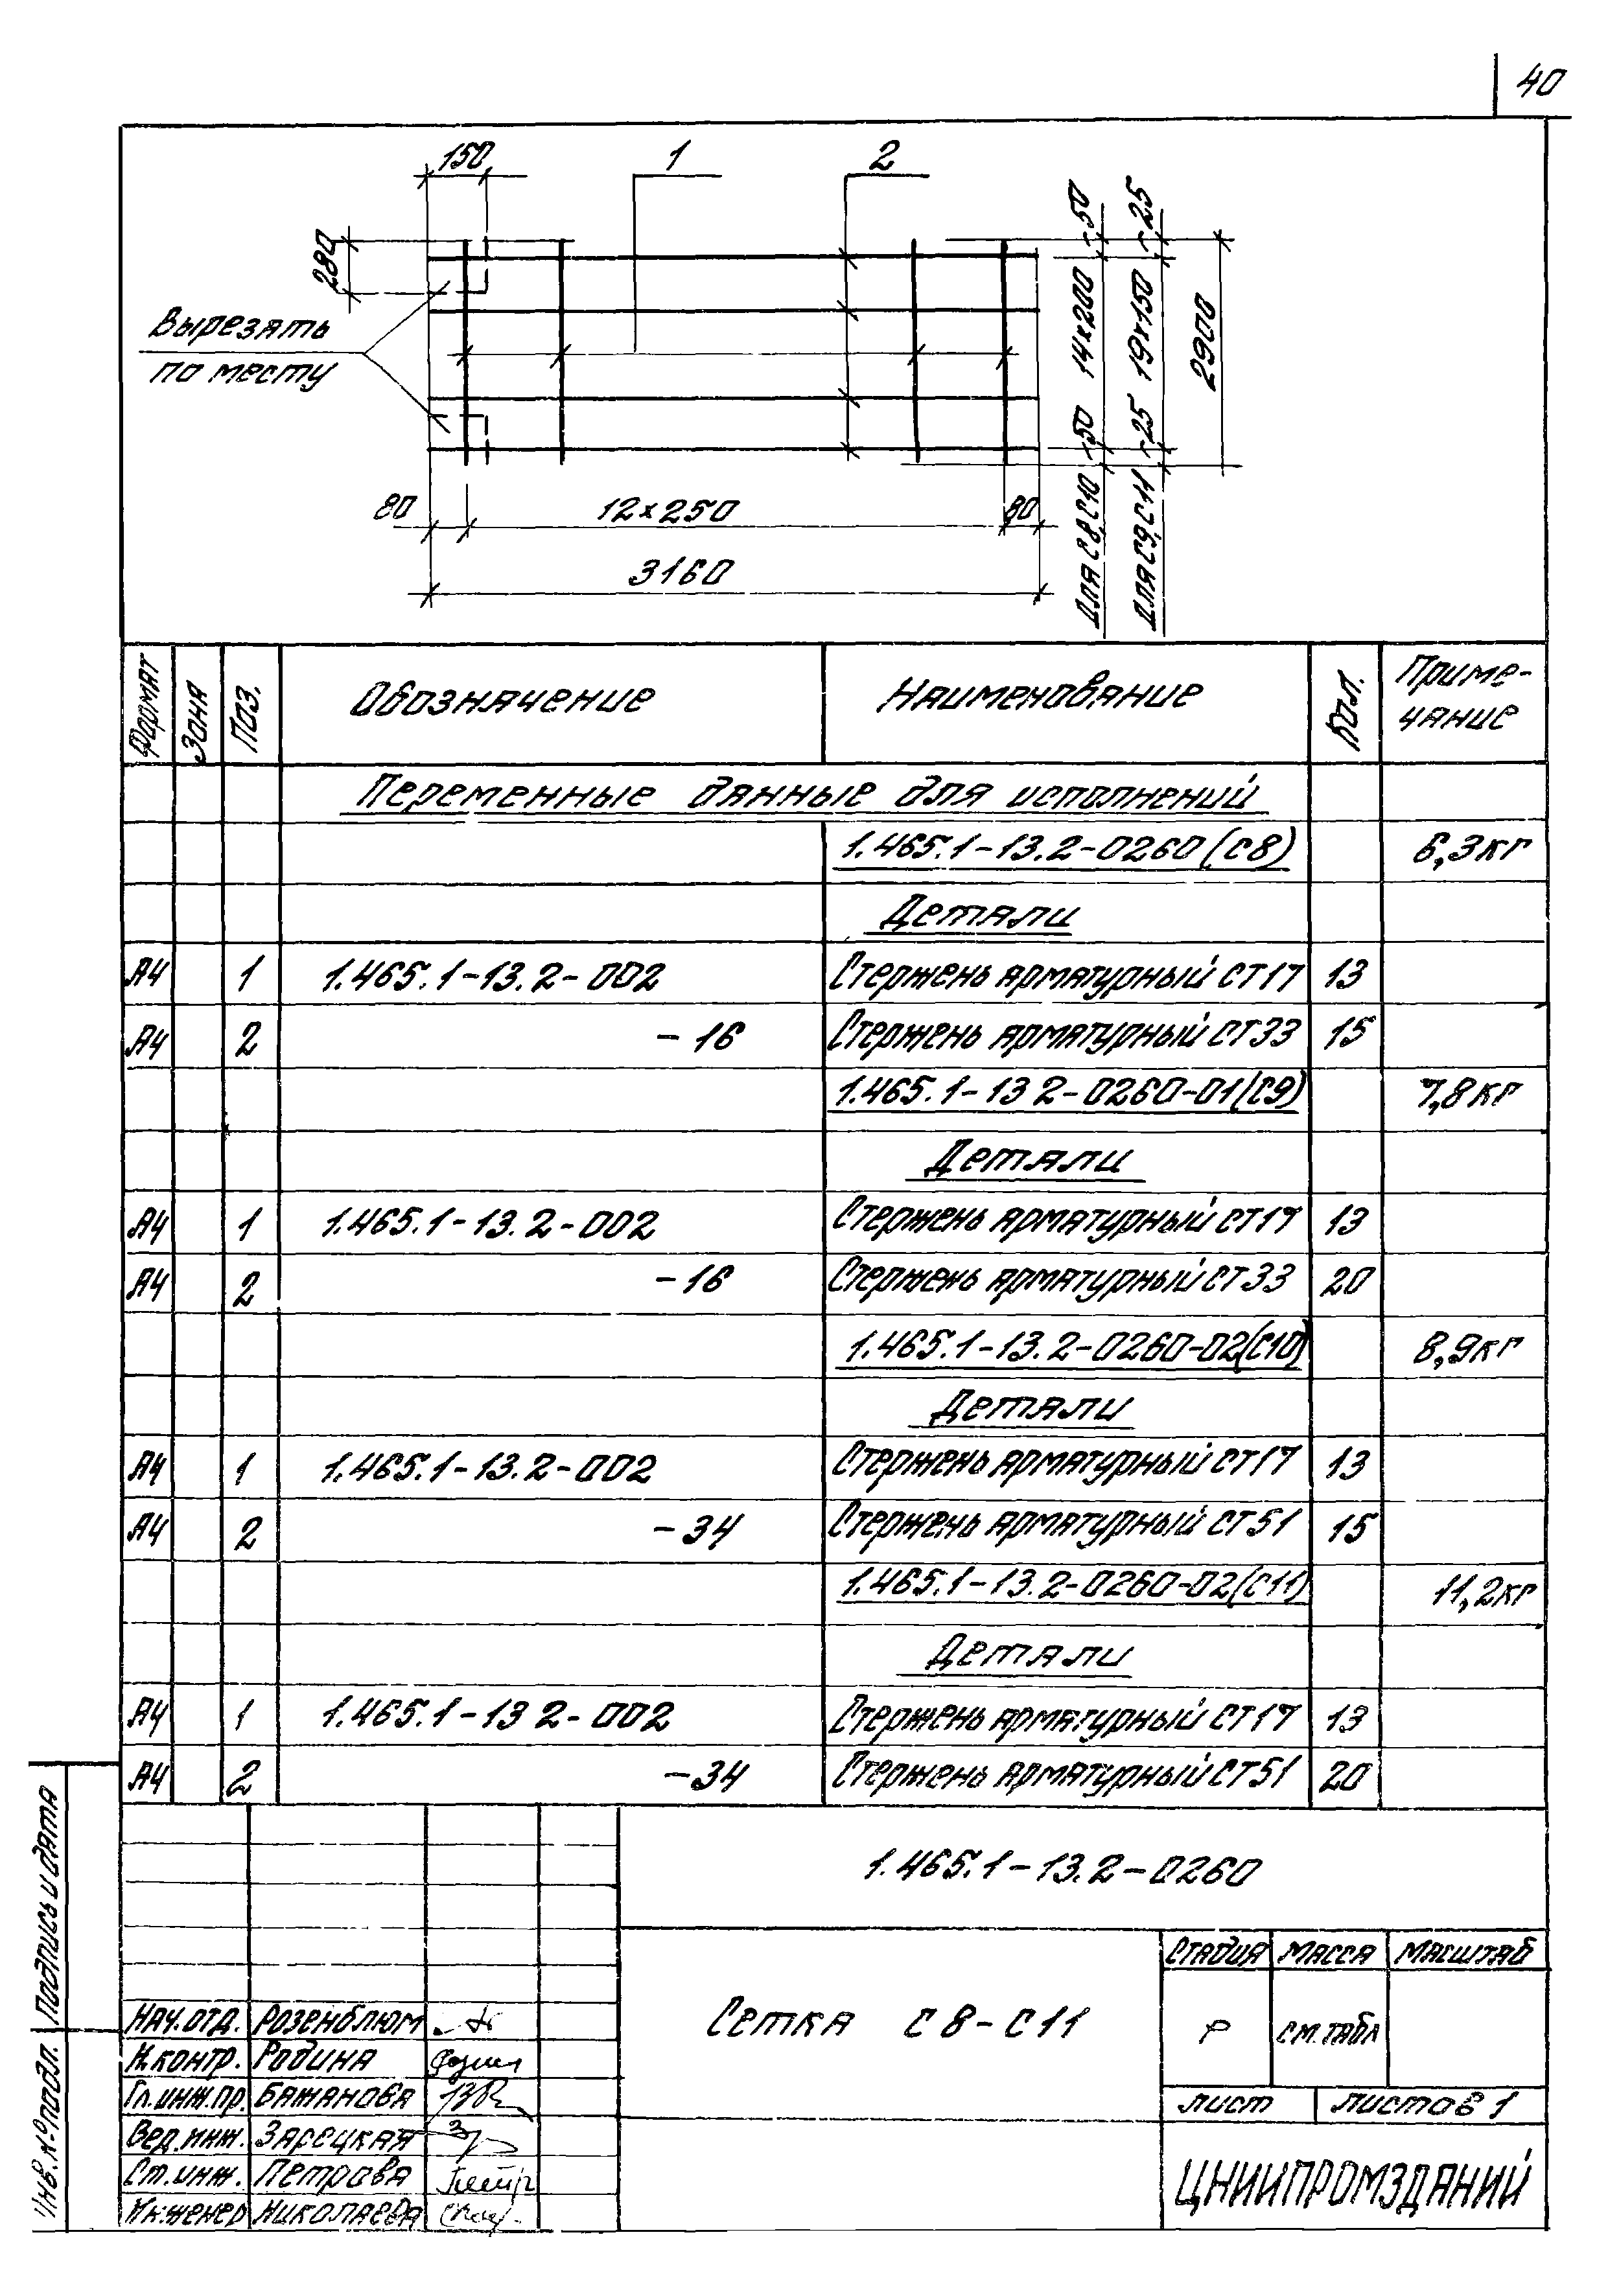 40
150 1 2
280
Вырезать
по месту
80 12×250 80
3160
для С8, С10 50 14×200 50
для С9, С11 25 19×150 25
2900
Формат Зона Поз. Обозначение Наименование Кол. Приме-
чание
Переменные данные для исполнений
1.465.1-13.2-0260 (С8) 6,3кг
Детали
А4 1 1.465.1-13.2-002 Стержень арматурный СТ17 13
А4 2 -16 Стержень арматурный СТ33 15
1.465.1-13 2-0260-01(С9) 7,8кг
Детали
А4 1 1.465.1-13.2-002 Стержень арматурный СТ17 13
А4 2 -16 Стержень арматурный СТ33 20
1.465.1-13.2-0260-02(С10) 8,9кг
Детали
А4 1 1.465.1-13.2-002 Стержень арматурный СТ17 13
А4 2 -34 Стержень арматурный СТ51 15
1.465.1-13.2-0260-02(С11) 11,2кг
Детали
А4 1 1.465.1-13 2-002 Стержень арматурный СТ17 13
А4 2 -34 Стержень арматурный СТ51 20
Инв.№подл. Подпись и дата
1.465.1-13.2-0260
Сетка С8-С11
Стадия Масса Масштаб
Р см.табл
Лист Листов 1
ЦНИИПРОМЗДАНИЙ
Нач.отд. Розенблюм
Н.контр. Родина
Гл.инж.пр. Бажанова
Вед.инж. Зарецкая
Ст.инж. Петрова
Инженер Николаева